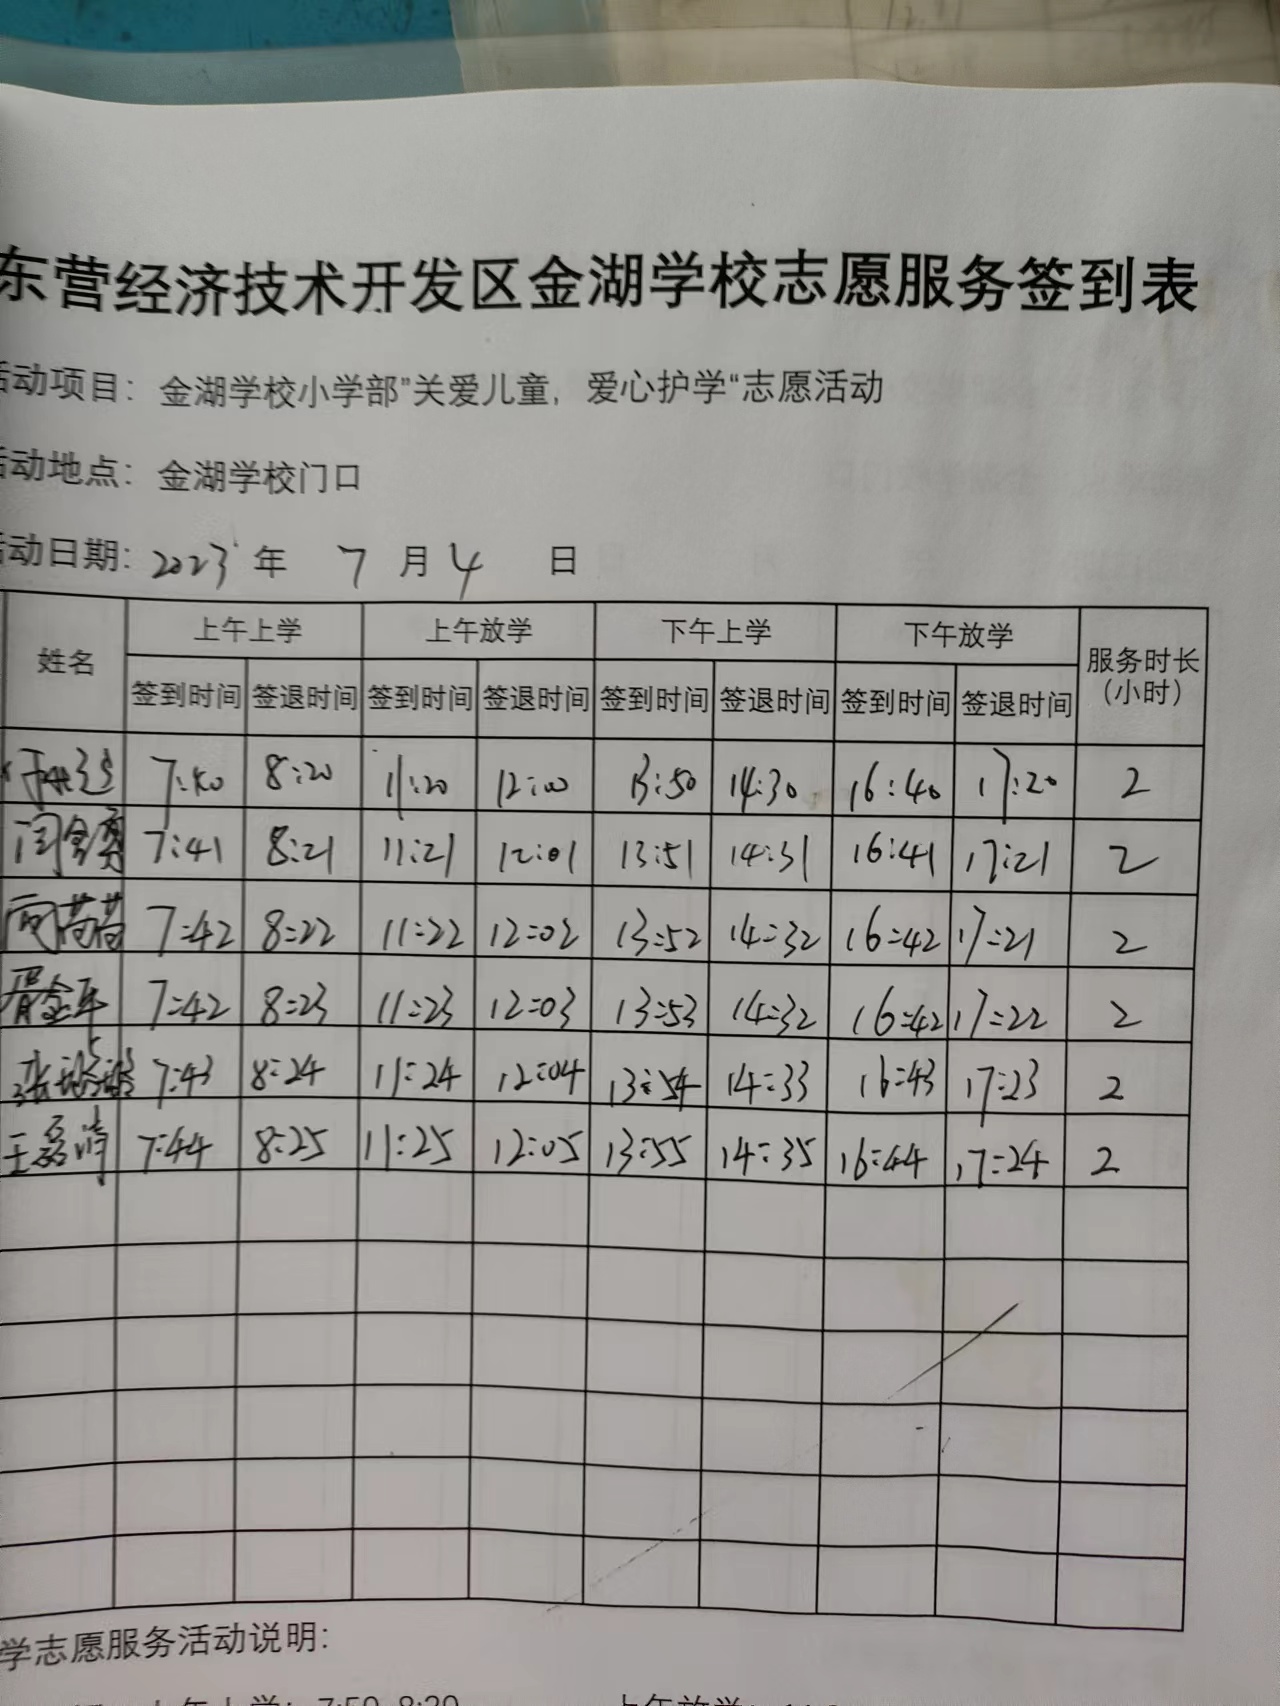 东营经济技术开发区金湖学校志愿服务签到表
活动项目：金湖学校小学部”关爱儿童，爱心护学“志愿活动
活动地点：金湖学校门口
活动日期：2023年 7 月 4 日
姓名 上午上学 上午放学 下午上学 下午放学 服务时长（小时）
签到时间 签退时间 签到时间 签退时间 签到时间 签退时间 签到时间 签退时间
7:40 8:20 11:20 12:00 13:50 14:30 16:40 17:20 2
7:41 8:21 11:21 12:01 13:51 14:31 16:41 17:21 2
7:42 8:22 11:22 12:02 13:52 14:32 16:42 17:21 2
胥金平 7:42 8:23 11:23 12:03 13:53 14:32 16:42 17:22 2
7:43 8:24 11:24 12:04 13:54 14:33 16:43 17:23 2
7:44 8:25 11:25 12:05 13:55 14:35 16:44 17:24 2
学志愿服务活动说明：
上午上学：7:50-8:20 上午放学：